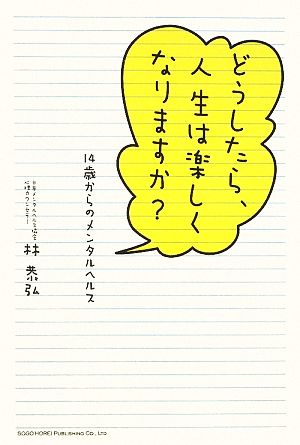 どうしたら、
人生は楽しく
なりますか？
14歳からのメンタルヘルス
日本メンタルヘルス協会
心理カウンセラー
林 恭弘
SOGO HOREI PUBLISHING CO., LTD